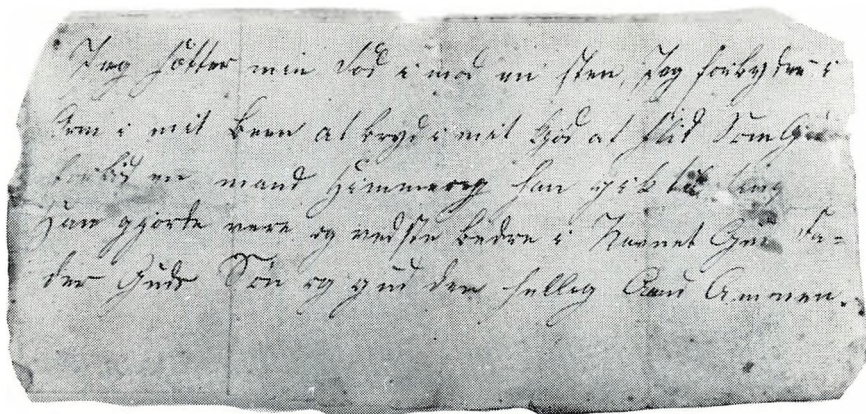 Jeg sætter min Fod i mod en sten, Jeg forbyder i
Orm i mit Been at bryd i mit kjød at slid Som Gud
forbød en mand Himmerig han gik til ting
Han gjorde vere og vedste bedre i Navnet Gud Fa=
der Guds Søn og gud den hellig Aand Ammen.